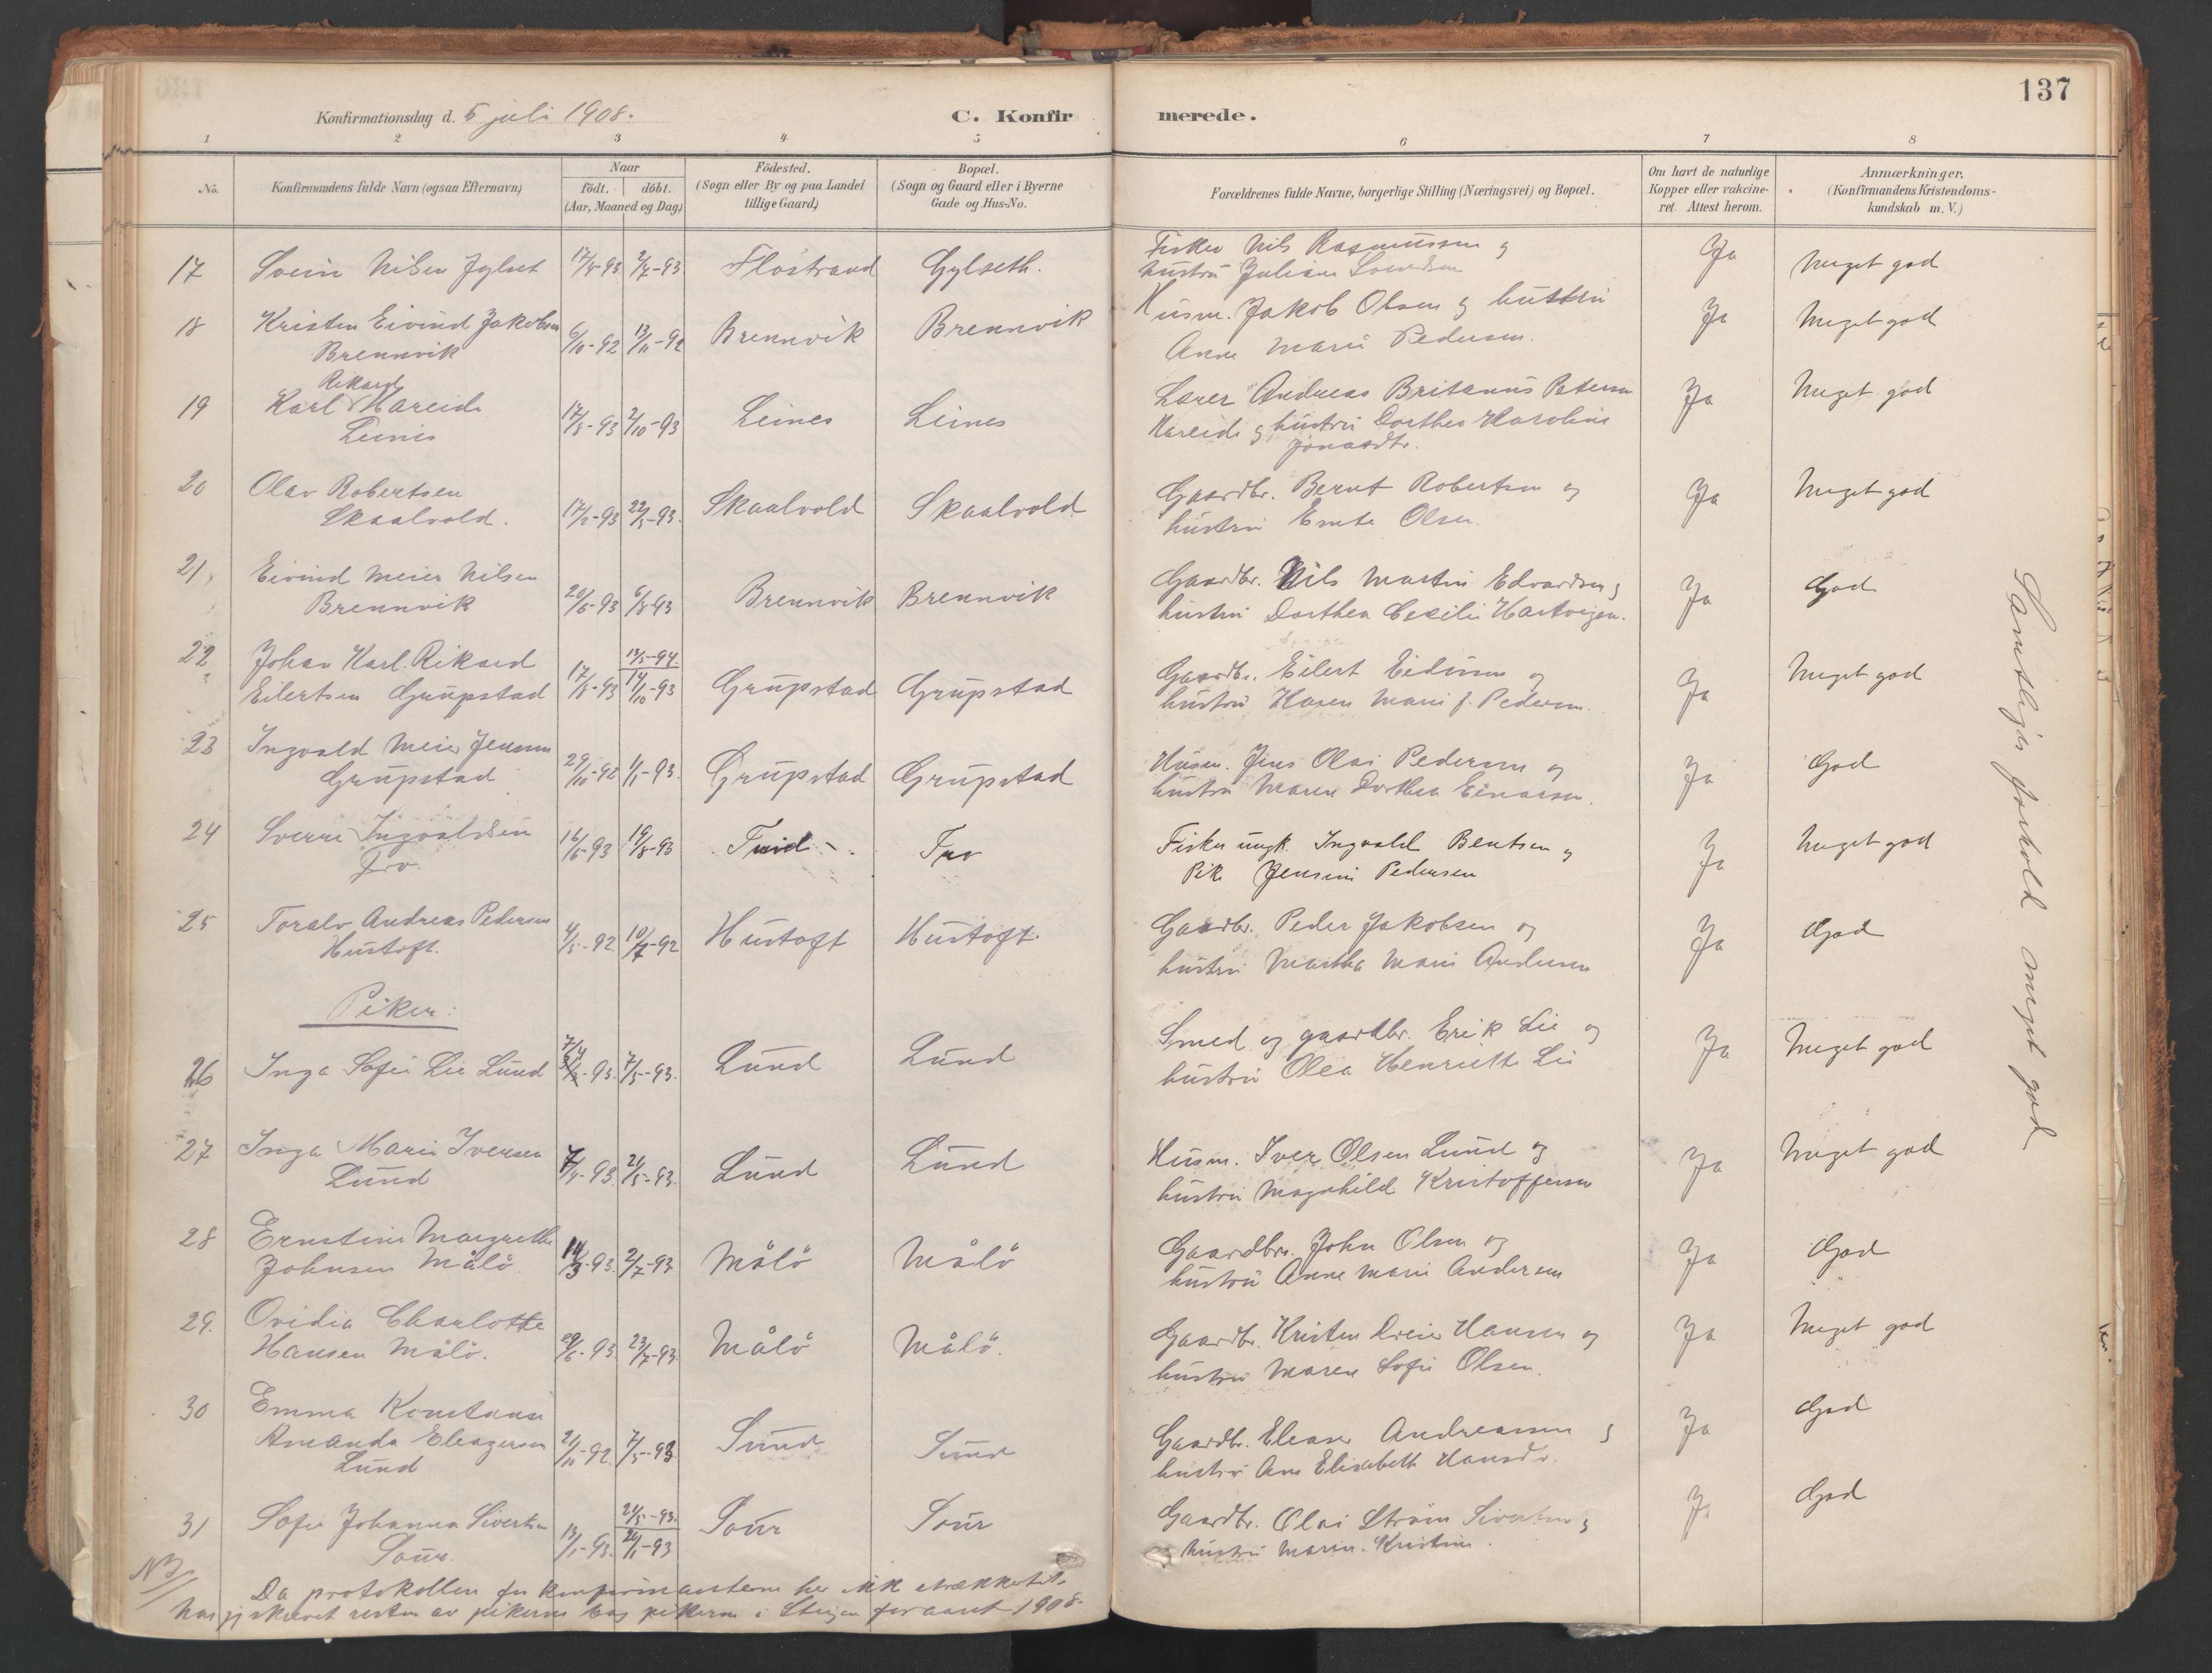 137
Konfirmationsdag d. 5 juli 1908.
C. Konfirmerede.
1 2 3 4 5 6 7 8
No.
Konfirmandens fulde Navn (ogsaa Efternavn)
Naar
födt. döbt.
(Aar, Maaned og Dag)
Födested.
(Sogn eller By og paa Landet
tillige Gaard)
Bopæl.
(Sogn og Gaard eller i Byerne
Gade og Hus-No.
Forældrenes fulde Navne, borgerlige Stilling (Næringsvei) og Bopæl.
Om havt de naturlige
Kopper eller vakcine-
ret. Attest herom.
Anmærkninger.
(Konfirmandens Kristendoms-
kundskab m. V.)
17 Svein Nilsen Jylset 2/7-93 Flöstrand Gylseth. Fisker Nils Rasmussen og Ja Meget god
hustru Juliane
18 Kristen Eivind Jakobsen 6/10-92 13/11-92 Brennvik Brennvik Husm. Jakob Olsen og hustru Ja Meget god
Brennvik Anne Marie Pedersen.
Rikard
19 Karl Hareide 17/8-93 2/10-93 Leines Leines Lærer Andreas Britanus Petersen Ja Meget god
Leines Hareide og hustru Dorthea Karoline
Jonasdtr.
20 Olav Robertsen 22/5-93. Skaalvold Skaalvold Gaardbr. Bernt Robertsen og Ja Meget god
Skaalvold. hustru Olsen.
21 Eivind Meier Nilsen 20/6-93 6/8-93 Brennvik Brennvik Gaardbr. Nils Martin Edvardsen og Ja God
Brennvik hustru Dorthea Cecilie Hartvigsen.
22 Johan Karl Rikard 17/8-93 13/5-94. 14/10-93 Grupstad Grupstad Gaardbr. Eilert Ja Meget god
Eilertsen Grupstad hustru Maren Marie J. Pedersen.
23 Ingvald Meier Jensen 29/10-92 1/1-93. Grupstad Grupstad Husm. Jens Olai Pedersen og Ja God
Grupstad hustru Maren Dorthea Einarsen.
24 Sverre Ingvaldsen 16/6-93 19/8-93 Fro Fisker ungk. Ingvald Bentsen og Ja Meget god
Fro. Pike Jensine Pedersen
25 Toralv Andreas Pedersen 4/5-92. 10/7-92 Hustoft Hustoft Gaardbr. Peder Jakobsen og Ja God
Hustoft. hustru Martha Marie Andersen
Piker:
26 Inga Sofie Lie Lund 7/4 -93. 7/5-93. Lund Lund Smed og gaardbr. Erik Lie og Ja Meget god
hustru Olea Henriette Lie
27 Inga Marie Iversen 7/4-93. 21/5-93. Lund Lund Husm. Iver Olsen Lund og Ja Meget god
Lund hustru Magnhild Kristoffersen
28 Ernstine Margrethe 14/3-93. 2/7-93 Målö Målö Gaardbr. John Olsen og Ja God
Johnsen Målö. hustru Anne Marie Andersen
29. Ovidia Charlotte 29/6-93 23/7-93. Målö Målö. Gaardbr. Kristen Dreier Hansen og Ja Meget god
Hansen Målö. hustru Maren Sofie Olsen.
30 Emma Konstanse 21/11-92. 7/5-93. Sund Sund Gaardbr. Eleaser Andreassen og Ja God
Amanda Eleazersen hustru Ane Elisabeth Hansdtr.
Lund
31 Sofie Johanna Sivertsen 13/1-93. 24/5-93. 24/1-93 Sour Sour Gaardbr. Olai Ström Sivertsen og Ja God
Sour. hustru Maren Kristine.
Samtliges forhold meget god
NB
Da protokollen for konfirmanterne her ikke strækker til,
har jeg skrevet resten av pikerne bag pikerne i Steigen for aaret 1908.